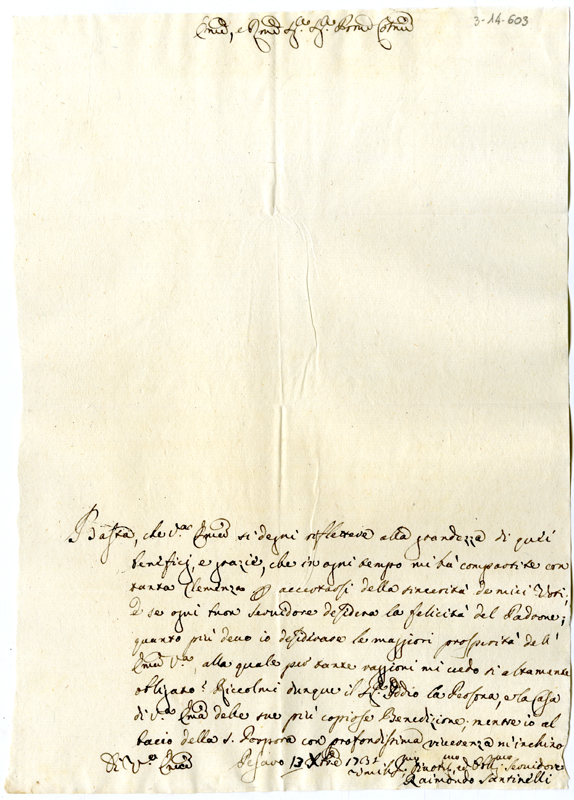 3-14-603
Em̃o, e Rm̃o Sig.re Sig.re Prone Col̃mo
Basta, che V.a Em̃a si degni riflettere alla grandezza di quei
benefici, e grazie, che in ogni tempo mi há compartite con
tanta Clemenza accertarsi della sincerità de miei Voti,
E se ogni buon Servidore desidera la felicità del Padrone;
quanto più devo io desiderare le maggiori prosperità dell'
Em̃a V.a, alla quale per tante raggioni mi vedo si altamente
obligato? Ricolmi dunque il Sig.re Iddio la Persona, e la Casa
di V.a Em̃a delle sue più copiose Benedizione; mentre io al
bacio della S. Porpora con profondissima riverenza m'inchino
Di V.a Em̃a
Pesaro 13 Xbre
Umiliss. Servidore
Raimondo Santinelli